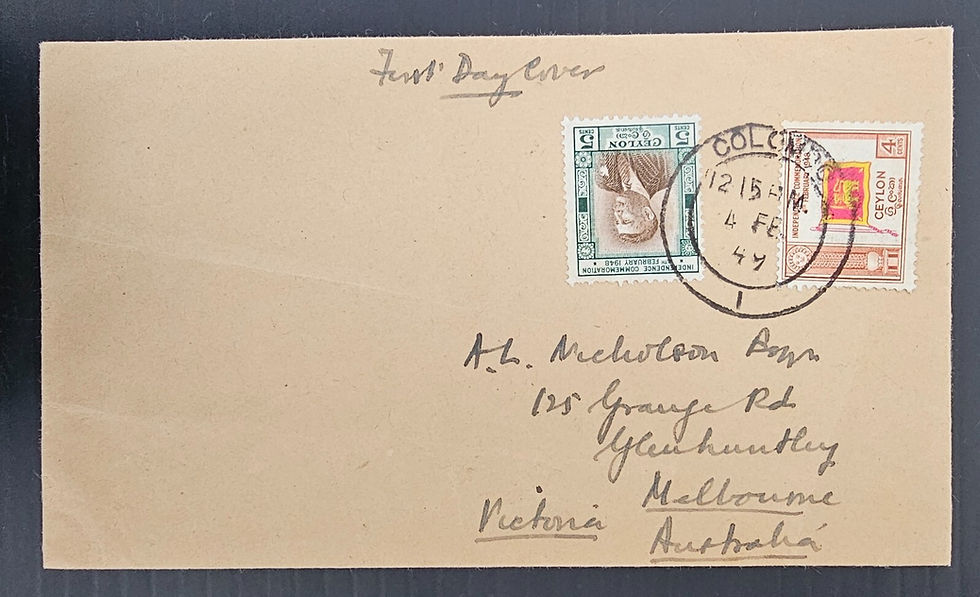 First Day Cover
5 CENTS
CEYLON
5 CENTS
INDEPENDENCE COMMEMORATION
4TH FEBRUARY 1948
COLOMBO
12 15 AM
4 FE
49
1
4 CENTS
CEYLON
ලංකා
இலங்கை
A.L. Nicholson Esqr
125 Grange Rd
Glenhuntley
Melbourne
Victoria
Australia